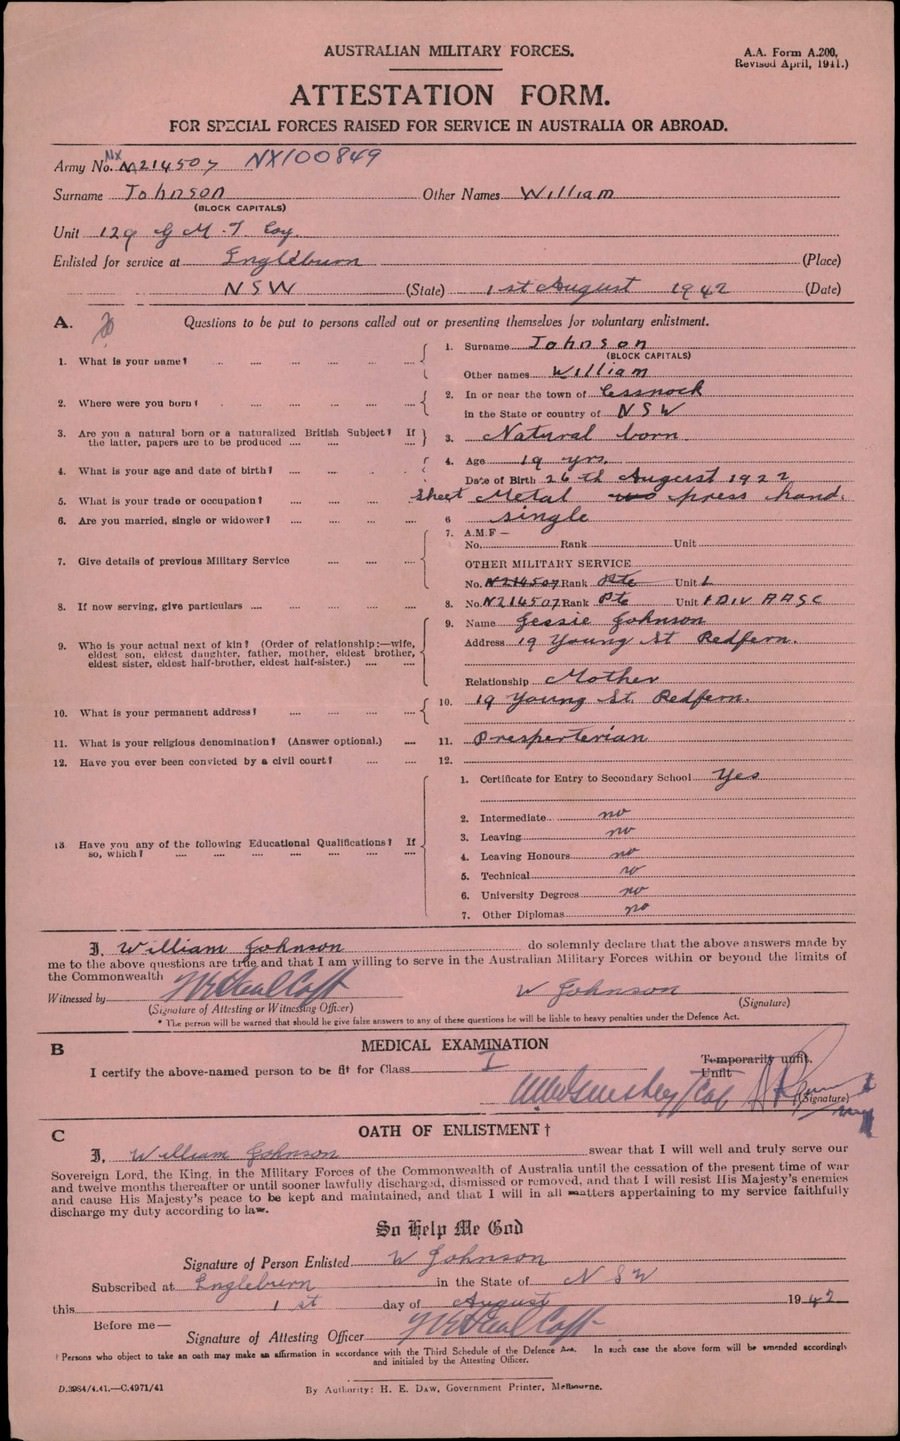 AUSTRALIAN MILITARY FORCES.
A.A. Form A.200,
Revised April, 1941.)
ATTESTATION FORM.
FOR SPECIAL FORCES RAISED FOR SERVICE IN AUSTRALIA OR ABROAD.
NX
Army No. N214507 NX100849
Surname Johnson Other Names William
(BLOCK CAPITALS)
Unit 129 G M T Coy.
Enlisted for service at Ingleburn (Place)
NSW (State) 1st August 1942 (Date)
A. Questions to be put to persons called out or presenting themselves for voluntary enlistment.
1. What is your name? 1. Surname Johnson
(BLOCK CAPITALS)
Other names William
2. Where were you born? 2. In or near the town of Cessnock
in the State or country of NSW
3. Are you a natural born or a naturalized British Subject? If the latter, papers are to be produced 3. Natural born
4. What is your age and date of birth? 4. Age 19 yrs.
Date of Birth 26th August 1922
5. What is your trade or occupation? Sheet Metal press hand.
6. Are you married, single or widower? 6 single
7. Give details of previous Military Service 7. A.M.F —
No. Rank Unit
OTHER MILITARY SERVICE
No. N214507 Rank Pte Unit L
8. If now serving, give particulars 8. No. N214507 Rank Pte Unit 1 DIV AASC
9. Who is your actual next of kin? (Order of relationship:—wife, eldest son, eldest daughter, father, mother, eldest brother, eldest sister, eldest half-brother, eldest half-sister.) 9. Name Jessie Johnson
Address 19 Young St Redfern.
Relationship Mother
10. What is your permanent address? 10. 19 Young St. Redfern.
11. What is your religious denomination? (Answer optional.) 11. Presperterian
12. Have you ever been convicted by a civil court? 12.
13 Have you any of the following Educational Qualifications? If so, which?
1. Certificate for Entry to Secondary School Yes
2. Intermediate no
3. Leaving no
4. Leaving Honours no
5. Technical no
6. University Degrees no
7. Other Diplomas no
I, William Johnson do solemnly declare that the above answers made by
me to the above questions are true and that I am willing to serve in the Australian Military Forces within or beyond the limits of
the Commonwealth
Witnessed by W Johnson (Signature)
(Signature of Attesting or Witnessing Officer)
* The person will be warned that should he give false answers to any of these questions he will be liable to heavy penalties under the Defence Act.
B MEDICAL EXAMINATION
I certify the above-named person to be fit for Class I Temporarily unfit.
Unfit
(Signature)
C OATH OF ENLISTMENT †
I, William Johnson swear that I will well and truly serve our
Sovereign Lord, the King, in the Military Forces of the Commonwealth of Australia until the cessation of the present time of war
and twelve months thereafter or until sooner lawfully discharged, dismissed or removed, and that I will resist His Majesty's enemies
and cause His Majesty's peace to be kept and maintained, and that I will in all matters appertaining to my service faithfully
discharge my duty according to law.
So Help Me God
Signature of Person Enlisted W Johnson
Subscribed at Ingleburn in the State of NSW
this 1st day of August 1942
Before me—
Signature of Attesting Officer
† Persons who object to take an oath may make an affirmation in accordance with the Third Schedule of the Defence Act. In such case the above form will be amended accordingly
and initialed by the Attesting Officer.
D.3984/4.41.—C.4971/41
By Authority: H. E. Daw, Government Printer, Melbourne.